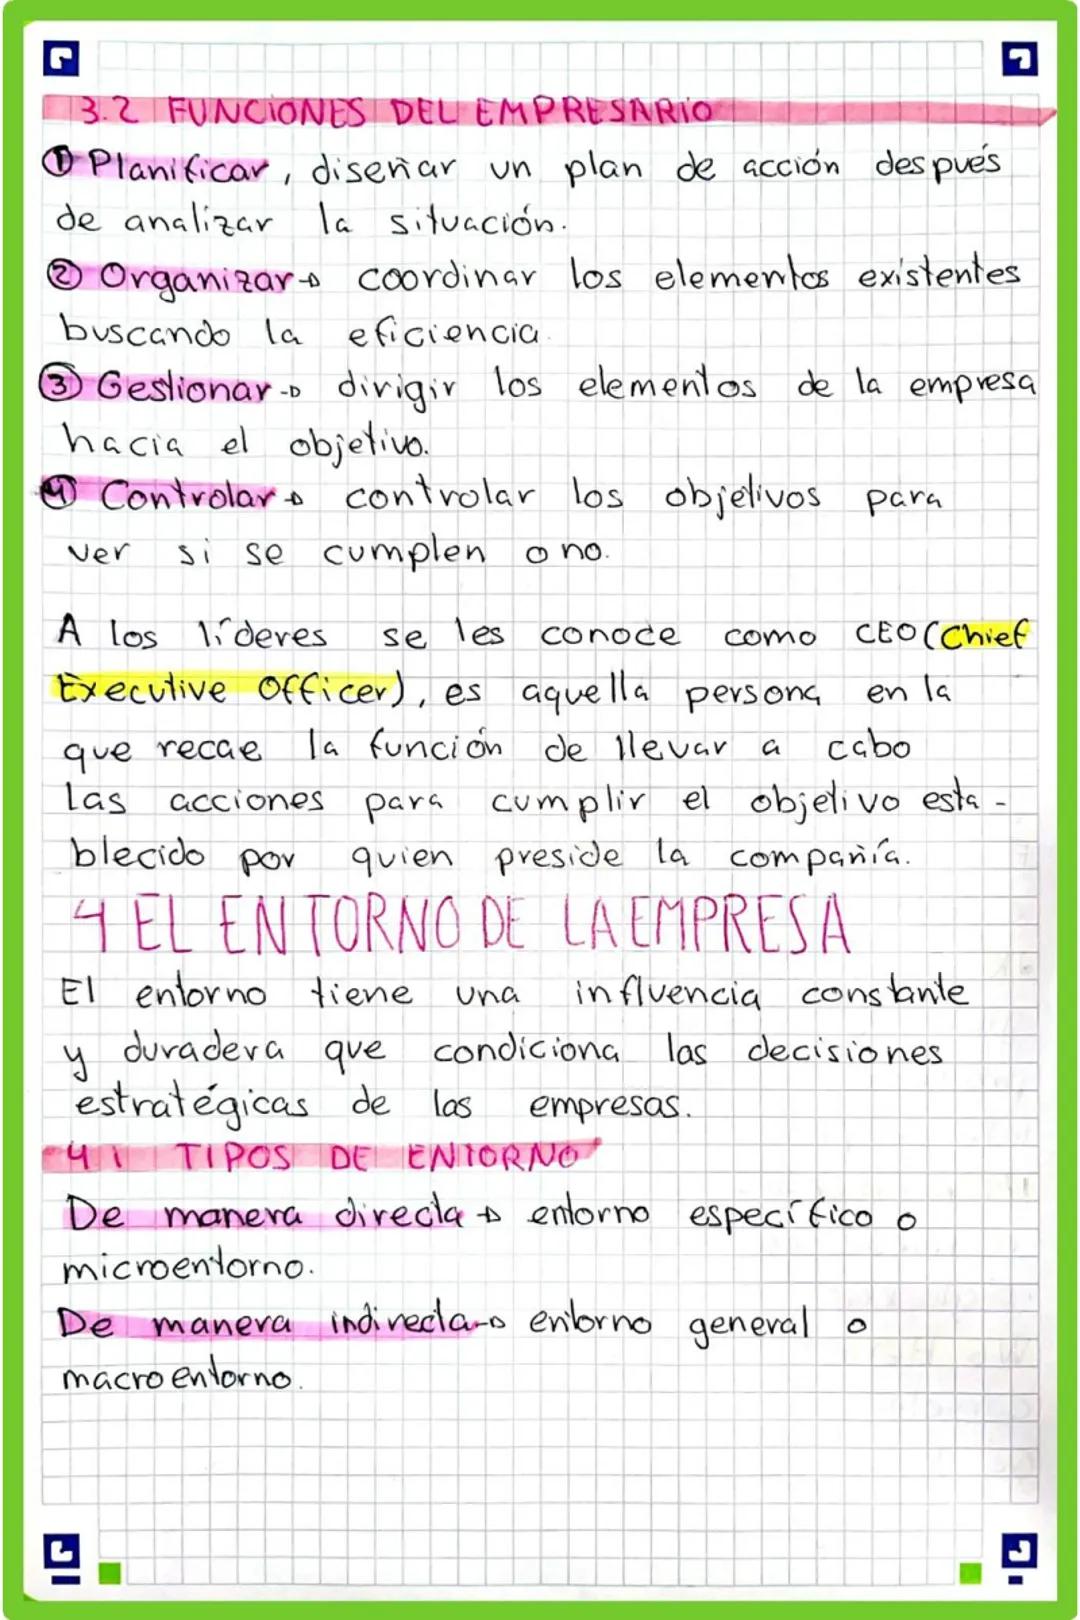 3.2 FUNCIONES DEL EMPRESARIO
① Planificar, diseñar un plan de acción después
de analizar la situación.
② Organizar → coordinar los elementos existentes
buscando la eficiencia.
③ Gestionar → dirigir los elementos de la empresa
hacia el objetivo.
④ Controlar → controlar los objetivos para
ver si se cumplen o no.
A los líderes se les conoce como CEO (Chief
Executive Officer), es aquella persona en la
que recae la función de llevar a cabo
las acciones para cumplir el objetivo esta-
blecido por quien preside la compañía.
4 EL ENTORNO DE LA EMPRESA
El entorno tiene una influencia constante
y duradera que condiciona las decisiones
estratégicas de las empresas.
4.1 TIPOS DE ENTORNO
De manera directa → entorno específico o
microentorno.
De manera indirecta → entorno general o
macroentorno.